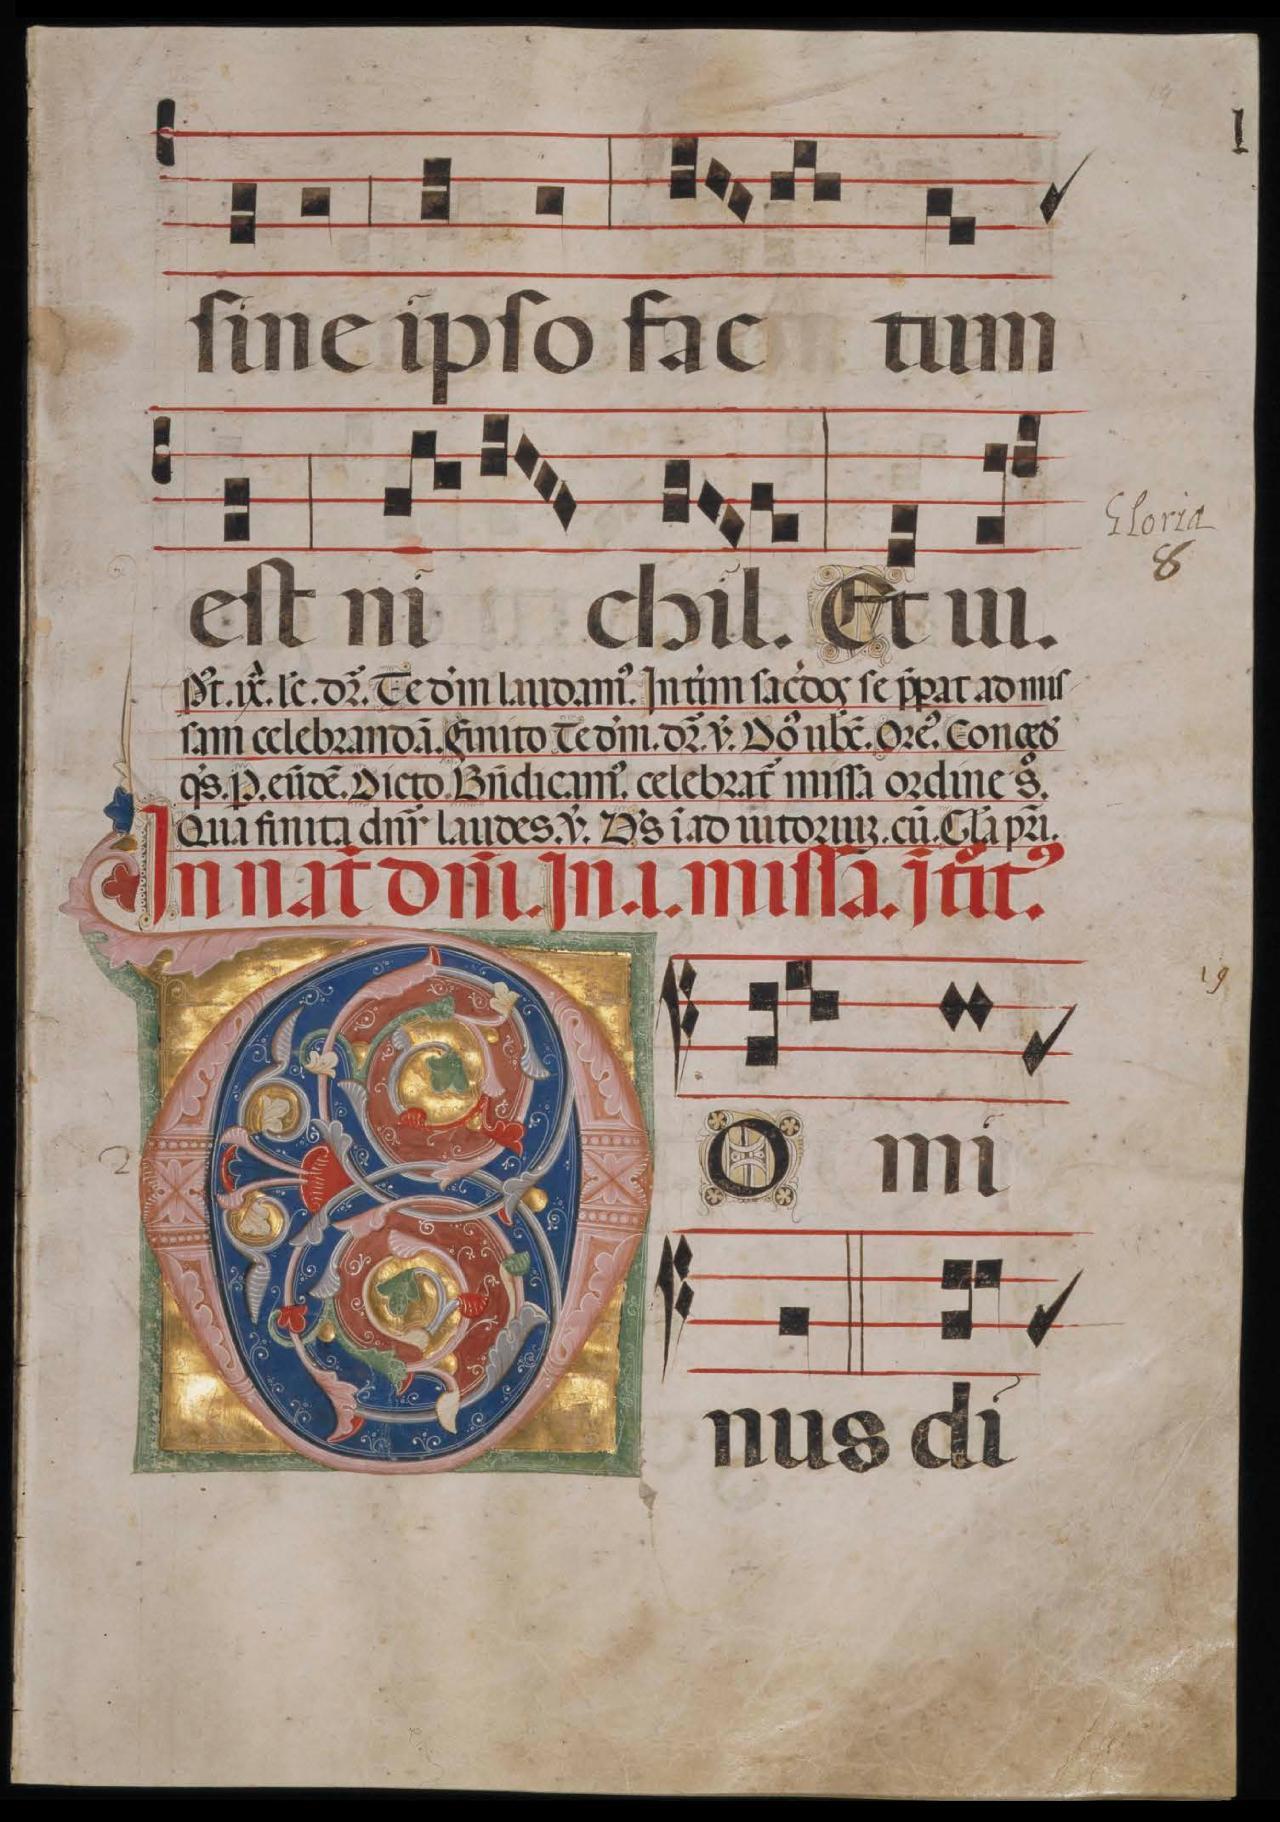 I
sine ip̄so fac tum
est ni chil. Et ui.
Gloria
8
Pꝰt. ix. lc̄. dr̄. Te dm̄ laudamꝰ. Int̄im sac̄dos se p̄parat ad mis
sam celebrandā. Finito Te dm̄. dr̄. v̄. Dō ūbc̄. Orē. Conced
q̄s. P. eūdē. Dicto. Bn̄dicamꝰ. celebrat̄ missa ordine s.
Qua finita dn̄r laudes. v̄. Ds̄ ī adiutorium. cū. Glā pr̄i.
In nat̄ dn̄i. In .i. missa. Int̄it.
19
D O mi
2
nus di